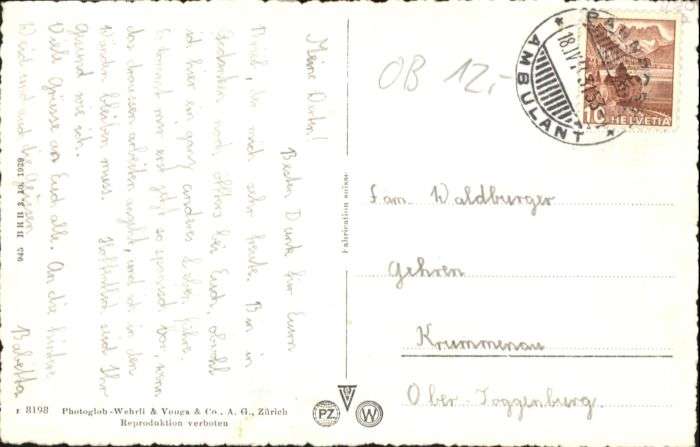 Meine Lieben!
Besten Dank für Euren
Brief, der mich sehr freute. Bin in
Gedanken noch öfters bei Euch, obwohl
ich hier ein ganz anderes Leben führe.
Es kommt man erst jetzt so spanisch vor, wenn
das draussen arbeiten angeht, und ich in den
Wänden bleiben muss. Hoffentlich seid Ihr
gesund wie ich.
Viele Grüsse an Euch alle. An die Kinder
Babetta
OB 12.-
AMBULANT
18.IV.
10
HELVETIA
Fam. Waldburger
Gehren
Krummenau
Ober-Toggenburg.
Fabrication suisse
r 8198 Photoglob-Wehrli & Vouga & Co., A. G., Zürich
Reproduktion verboten
PZ
W